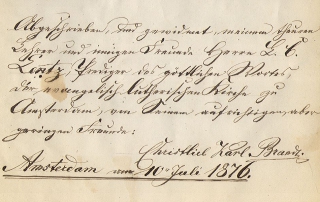 Abgeschrieben, und gewidmet, meinem theuren
Lehrer und innigen Freunde Herrn L. C.
Lentz, Prediger des göttlichen Wortes,
der evangelisch-lutherischen Kirche zu
Amsterdam, von Seinem aufrichtigen, aber
geringen Freunde:
Christlieb Karl
Amsterdam am 10 Juli 1876.